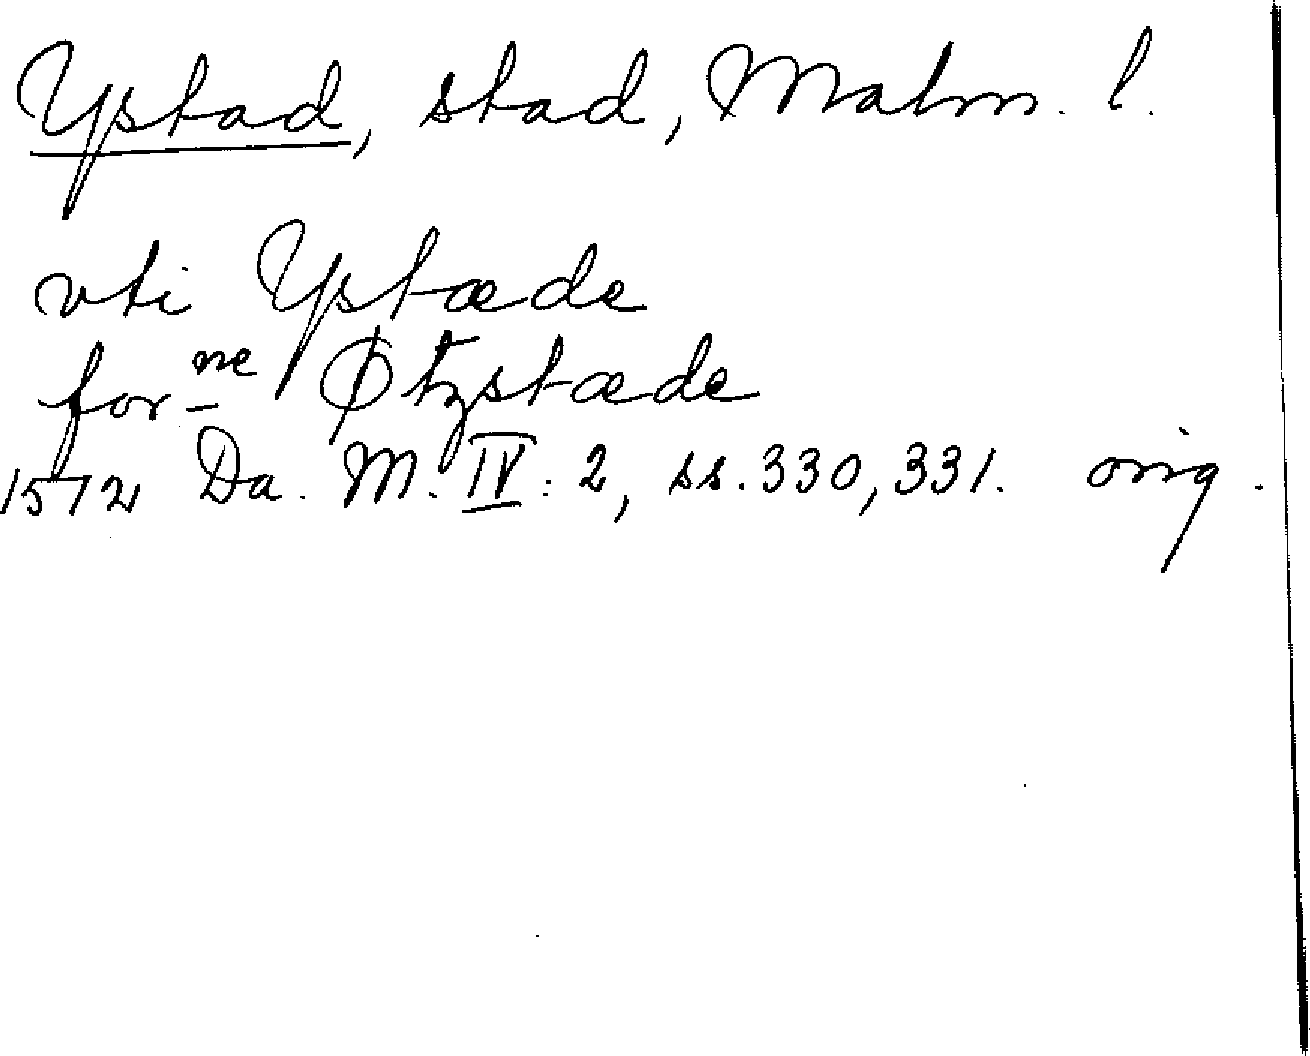 Ystad, stad, Malm. l.
vti Ystæde
for-ne Øtzstæde
1572 Da. M. IV: 2, ss. 330, 331. orig.